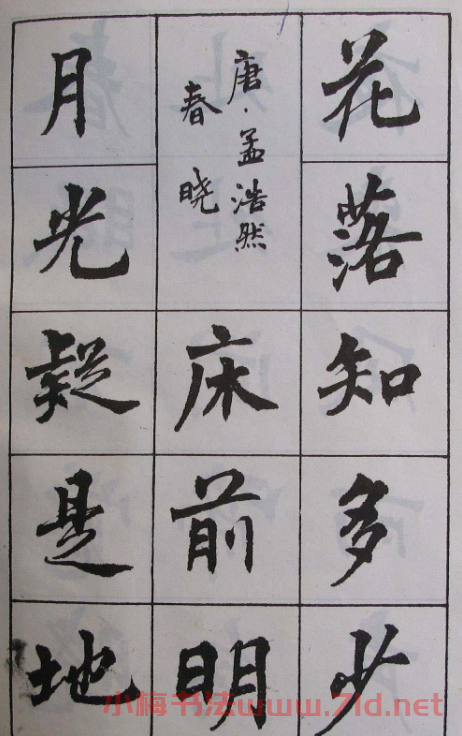 花落知多少
唐·孟浩然
春晓
床前明
月光疑是地
小梅书法www.7ld.net